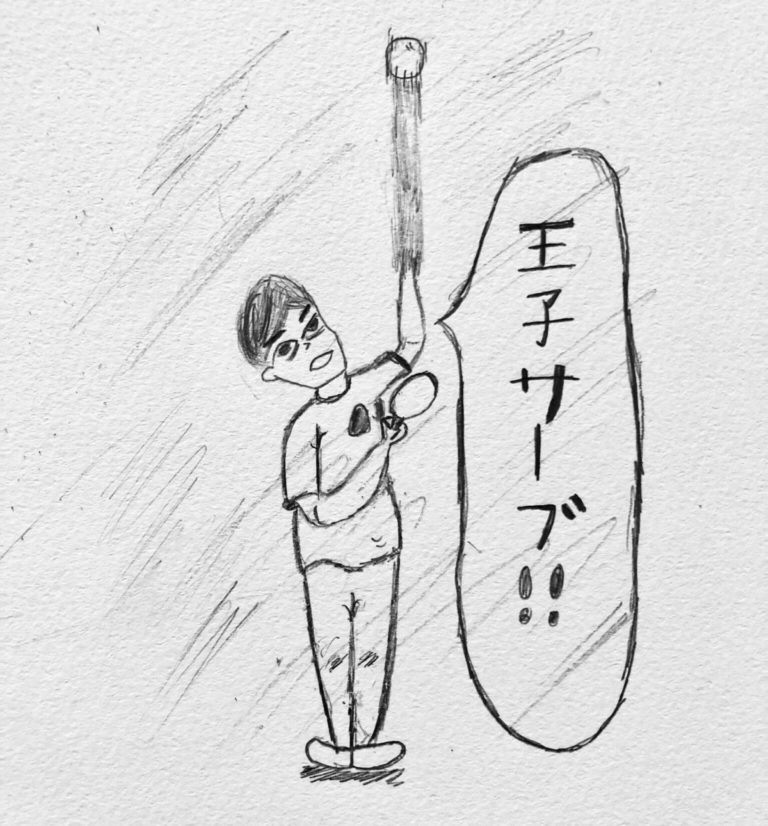 王子サーブ!!